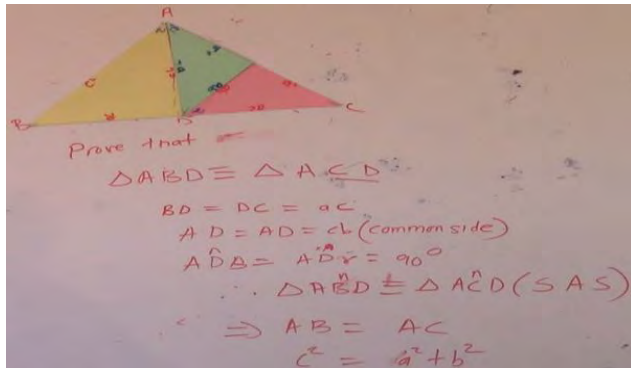 A
B
D
C
Prove that
△ABD ≡ △ACD
BD = DC = ac
AD = AD = cb (common side)
AD̂B = AD̂r = 90°
∴ △AB̂D ≡ △AĈD (SAS)
⇒ AB = AC
c² = a² + b²